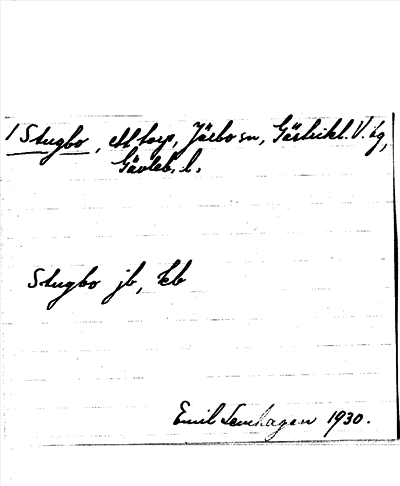 1 Stugbo, ett torp, Järbo sn, Gästrikl. V. tg,
Gävleb. l.
Stugbo jb, kb
Emil Lemhagen 1930.